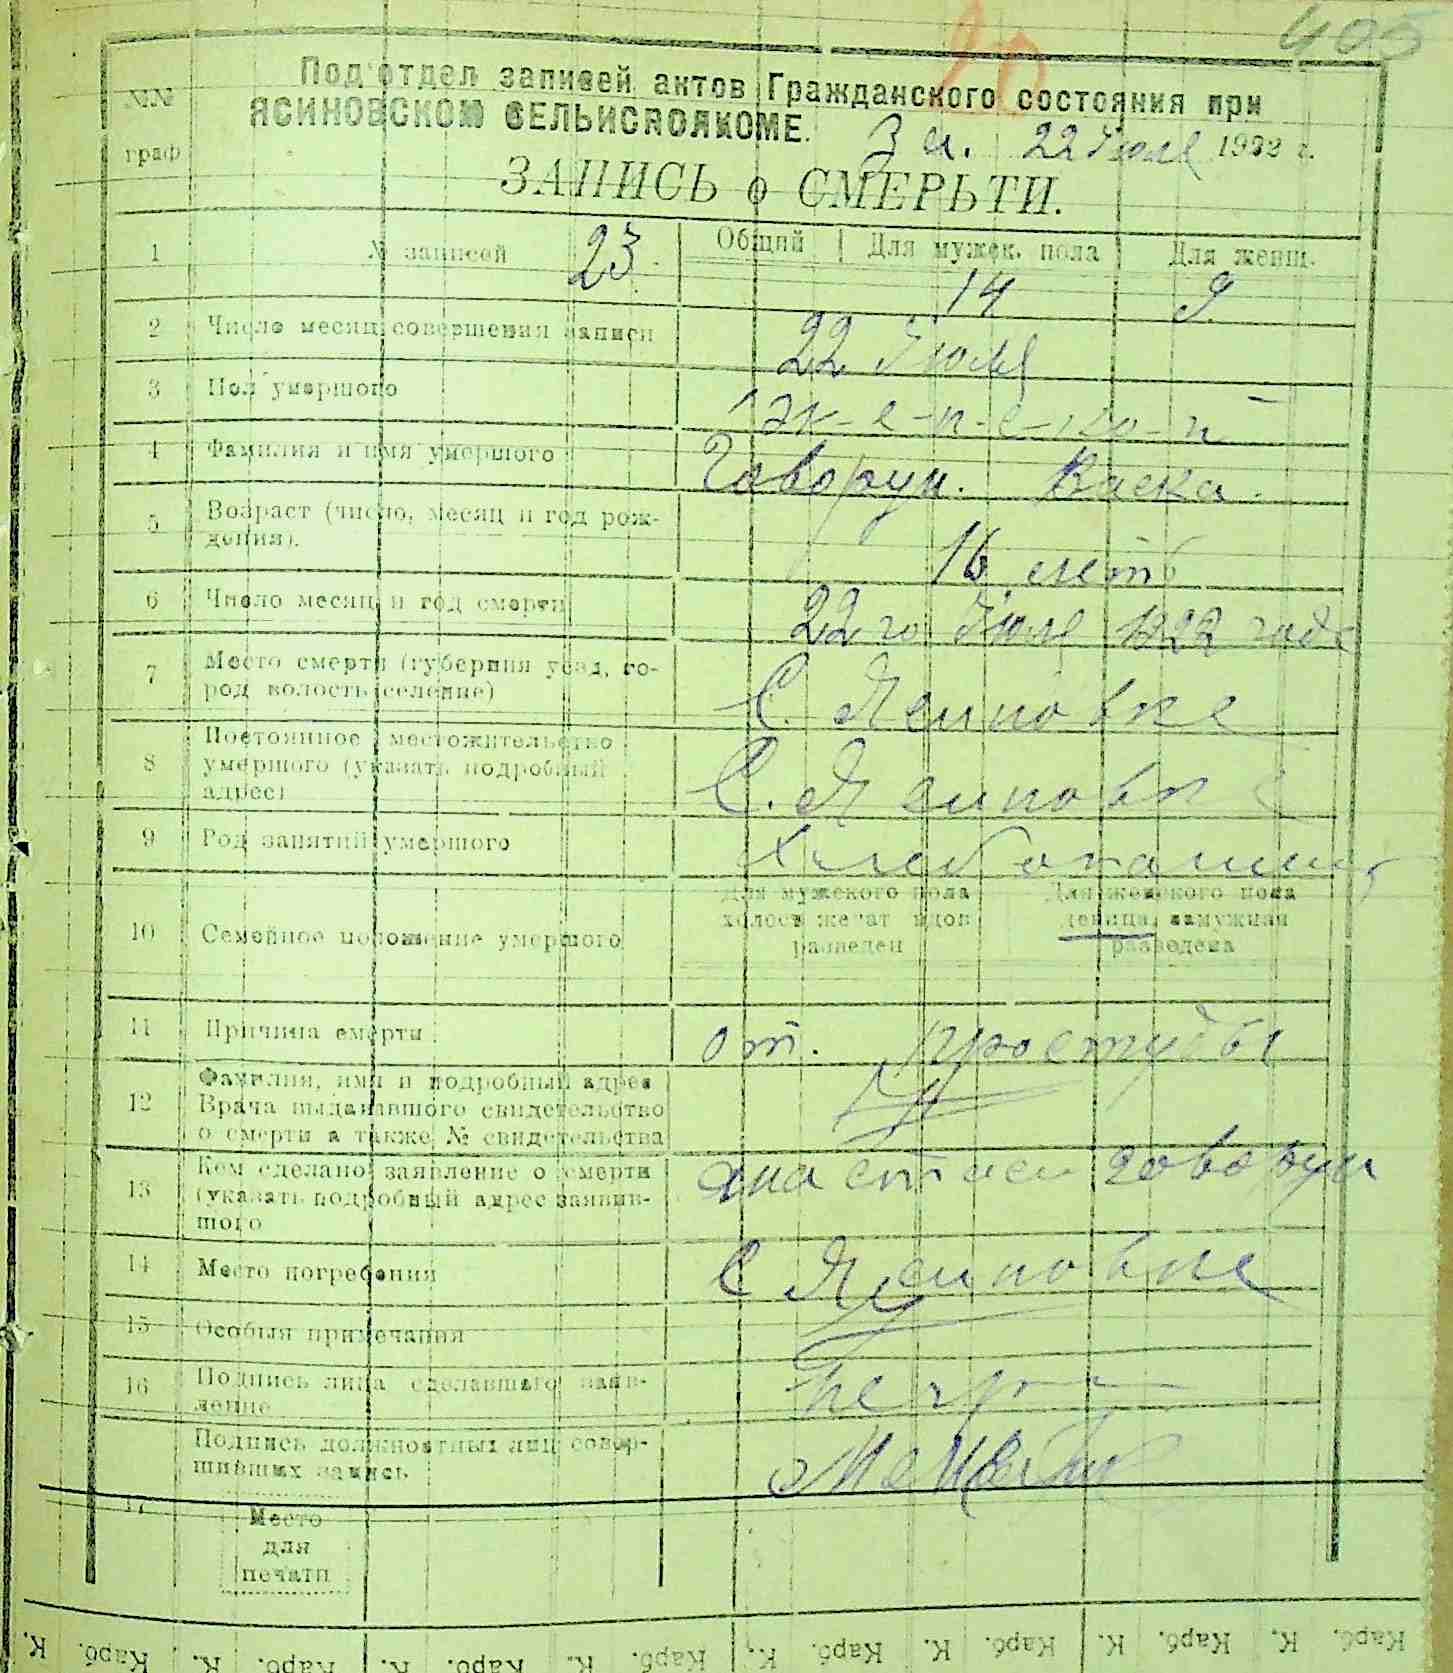 405
Под'отдел записей актов Гражданского состояния при
ЯСИНОВСКОМ СЕЛЬИСПОЛКОМЕ.
22 Июля 1922 г.
№№ граф
ЗАПИСЬ о СМЕРЬТИ.
1 № записей 23. Общий Для мужск. пола Для женщ.
14 9
2 Число месяц совершения записи 22 Июля
3 Пол умершого
4 Фамилия и имя умершого Говорун.
5 Возраст (число, месяц и год рож-
дения). 16 летъ
6 Число месяц и год смерти 22 го Июля 1922 года
7 Место смерти (губерния уезд, го-
род волость селение) С. Ясиновке
8 Постоянное местожительство
умершого (указать подробный
адрес) С. Ясиновке
9 Род занятий умершого
10 Семейное положение умершого
Для мужского пола
холост женат вдов
разведен
Для женского пола
девица замужняя
разведена
11 Причина смерти от. простуды
12 Фамилия, имя и подробный адрес
Врача выдававшого свидетельство
о смерти а также № свидетельства
13 Кем сделано заявление о смерти
(указать подробный адрес заявив-
шого говорун
14 Место погребения С Ясиновке
15 Особыя примечания
16 Подпись лица сделавшаго заяв-
ление
Подпись должностных лиц совер-
шивших запись
17
Место
для
печати
К. Карб. К. Карб. К. Карб. К. Карб. К. Карб. К. Карб. К. Карб.